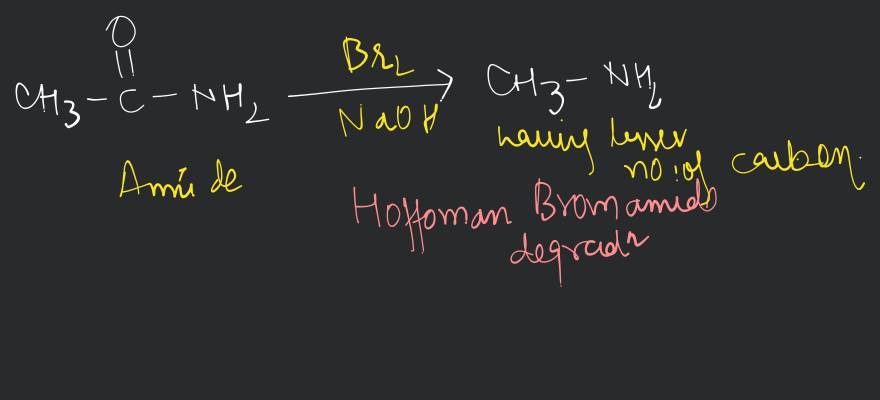 O
||
CH3 – C – NH2
Br2
NaOH
CH3 – NH2
Amide
having lesser
no. of carbon.
Hoffoman Bromamide
degradn